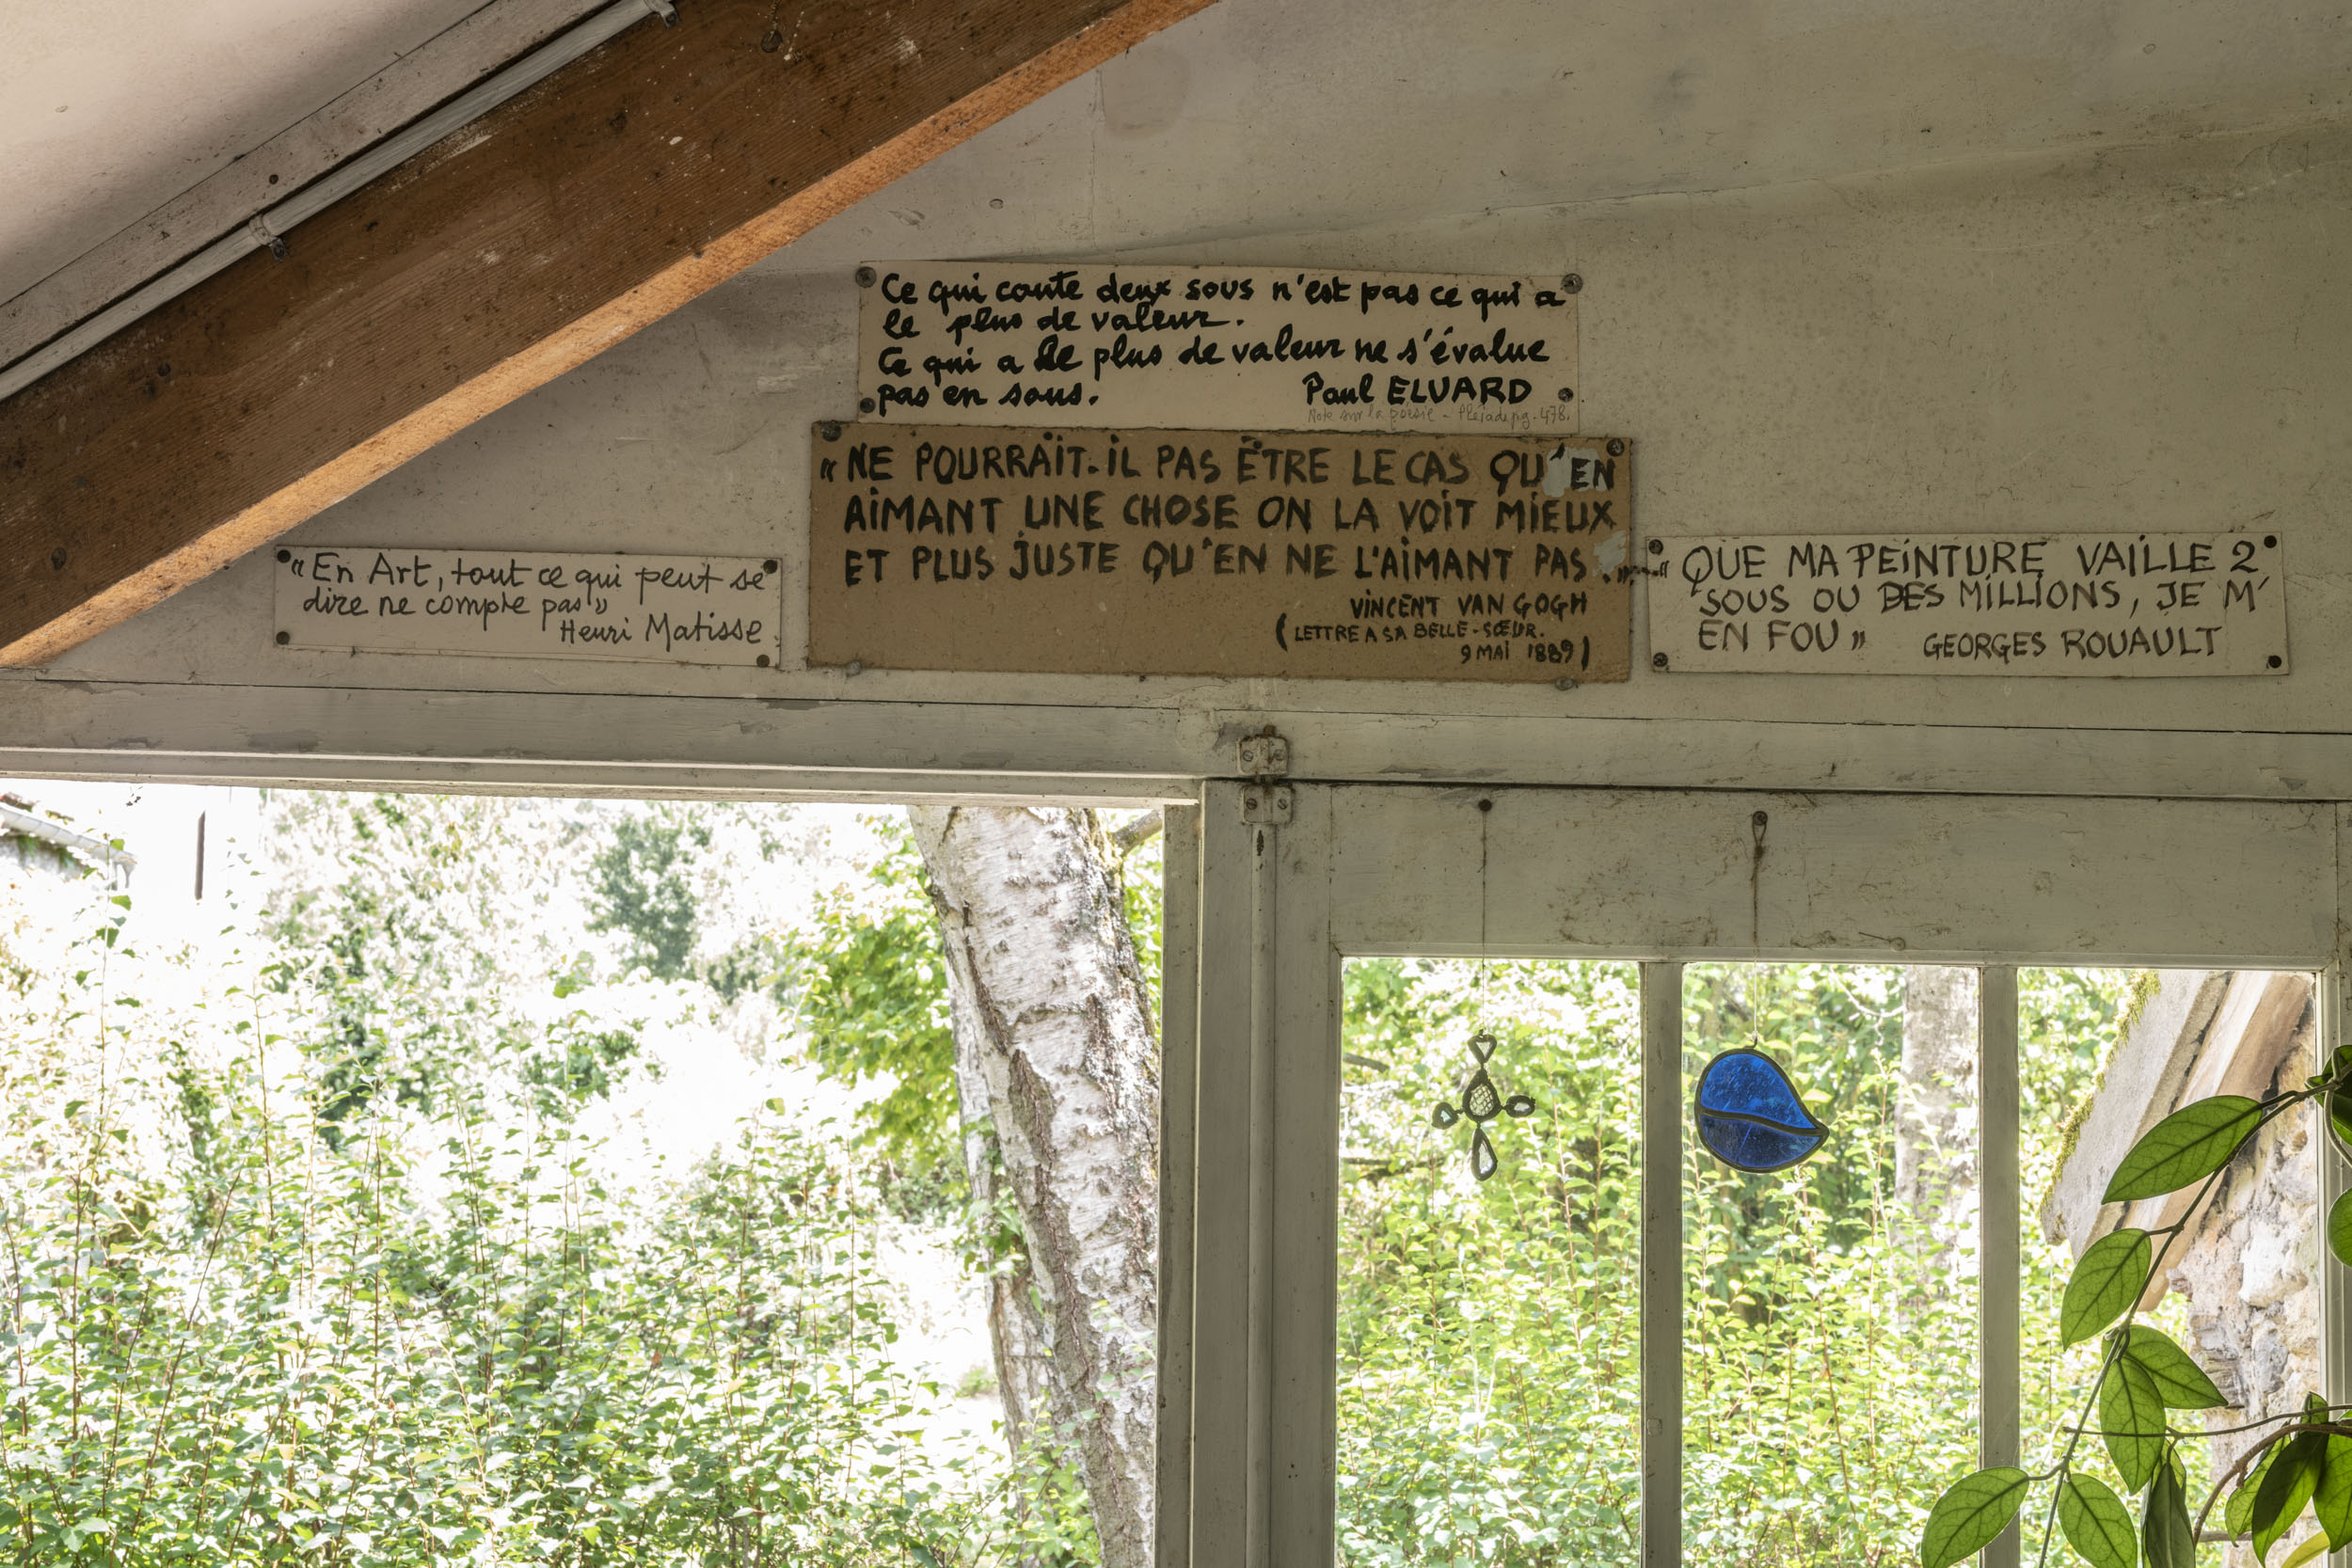 Ce qui coute deux sous n'est pas ce qui a
le plus de valeur.
Ce qui a le plus de valeur ne s'évalue
pas en sous. Paul ELUARD
Note sur la poésie - Pleiade pg. 478.
« NE POURRAIT-IL PAS ÊTRE LE CAS QU'EN
AIMANT UNE CHOSE ON LA VOIT MIEUX
ET PLUS JUSTE QU'EN NE L'AIMANT PAS. »
VINCENT VAN GOGH
( LETTRE A SA BELLE-SŒUR.
9 MAI 1889 )
« En Art, tout ce qui peut se
dire ne compte pas »
Henri Matisse
« QUE MA PEINTURE VAILLE 2
SOUS OU DES MILLIONS, JE M'
EN FOU » GEORGES ROUAULT